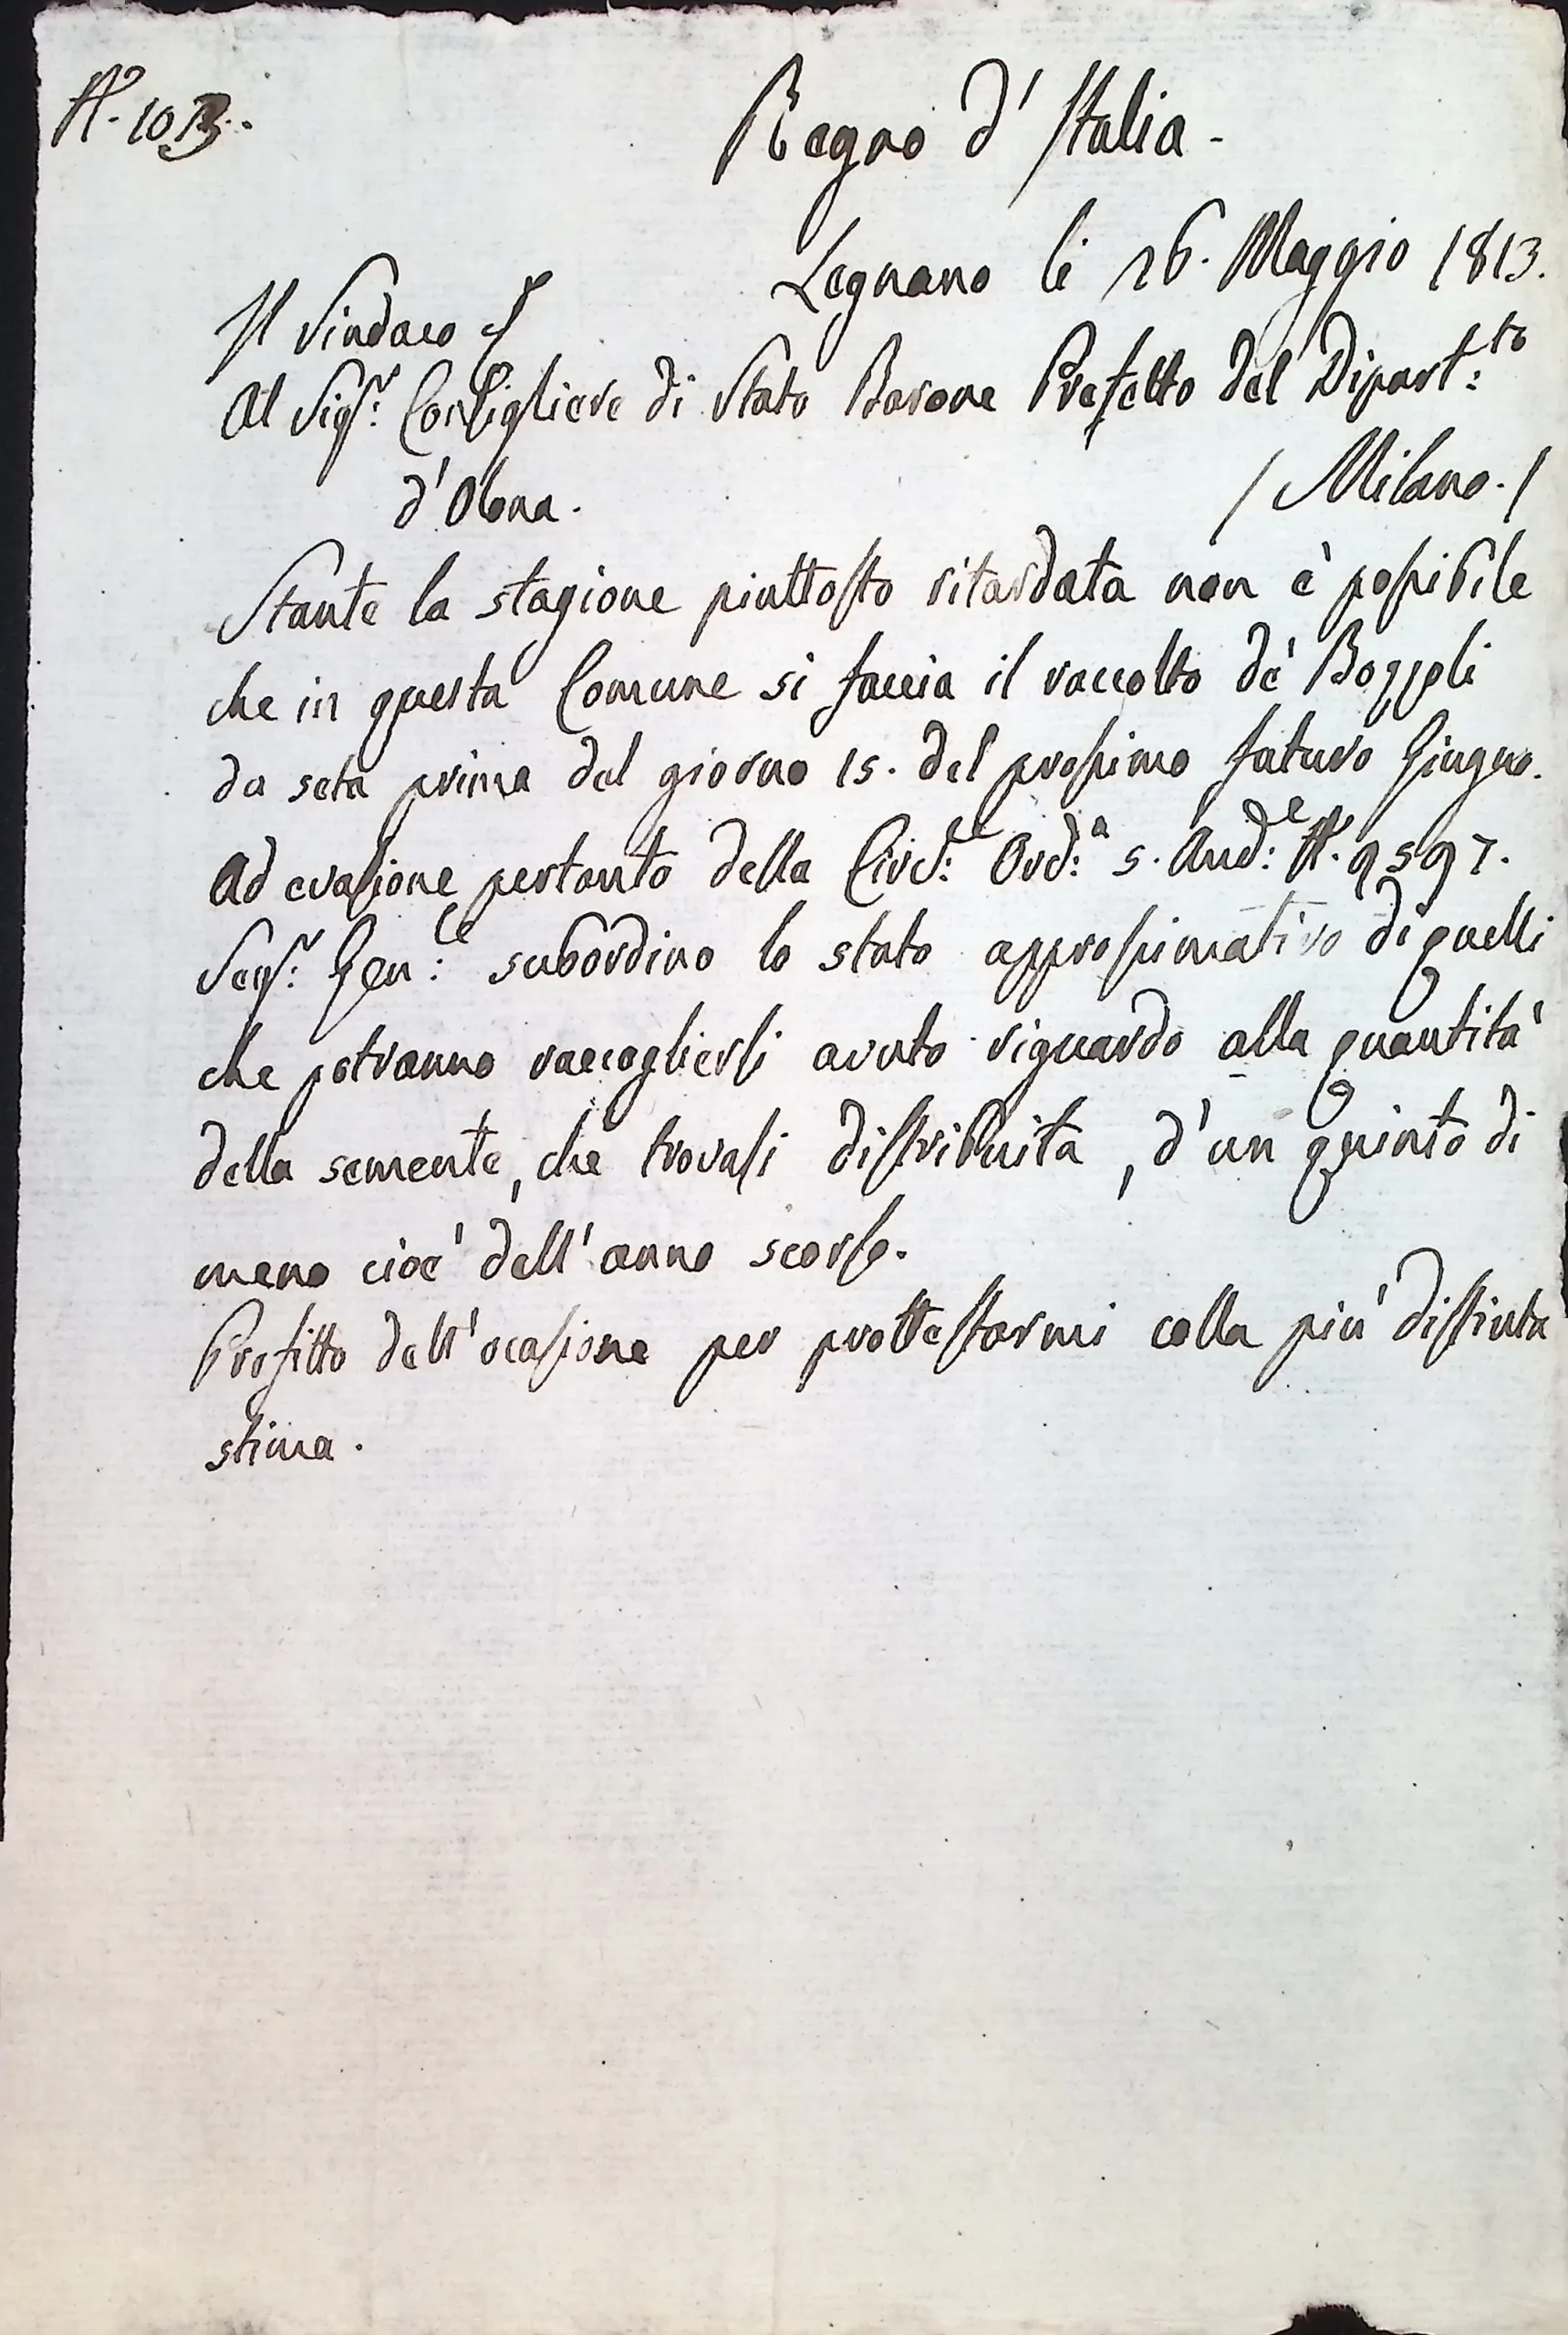 N.º 1013.
Regno d'Italia.
Legnano li 26. Maggio 1813.
Il Sindaco
Al Sigr: Consigliere di Stato Barone Prefetto del Dipart:to
d'Olona.
/ Milano. /
Stante la stagione piuttosto ritardata non è possibile
che in questa Comune si faccia il raccolto dè Bozzoli
da seta prima del giorno 15. del prossimo futuro Giugno.
Ad evasione pertanto della Circ:le Ord:a 5. And:e Nº. 9597.
Segr: Gen:le subordino lo stato approssimativo di quelli
che potranno raccogliersi avuto riguardo alla quantità
della semente, che trovasi distribuita, d'un quinto di
meno cioè dell'anno scorso.
Profitto dell'ocasione per prottestarmi colla più distinta
stima.